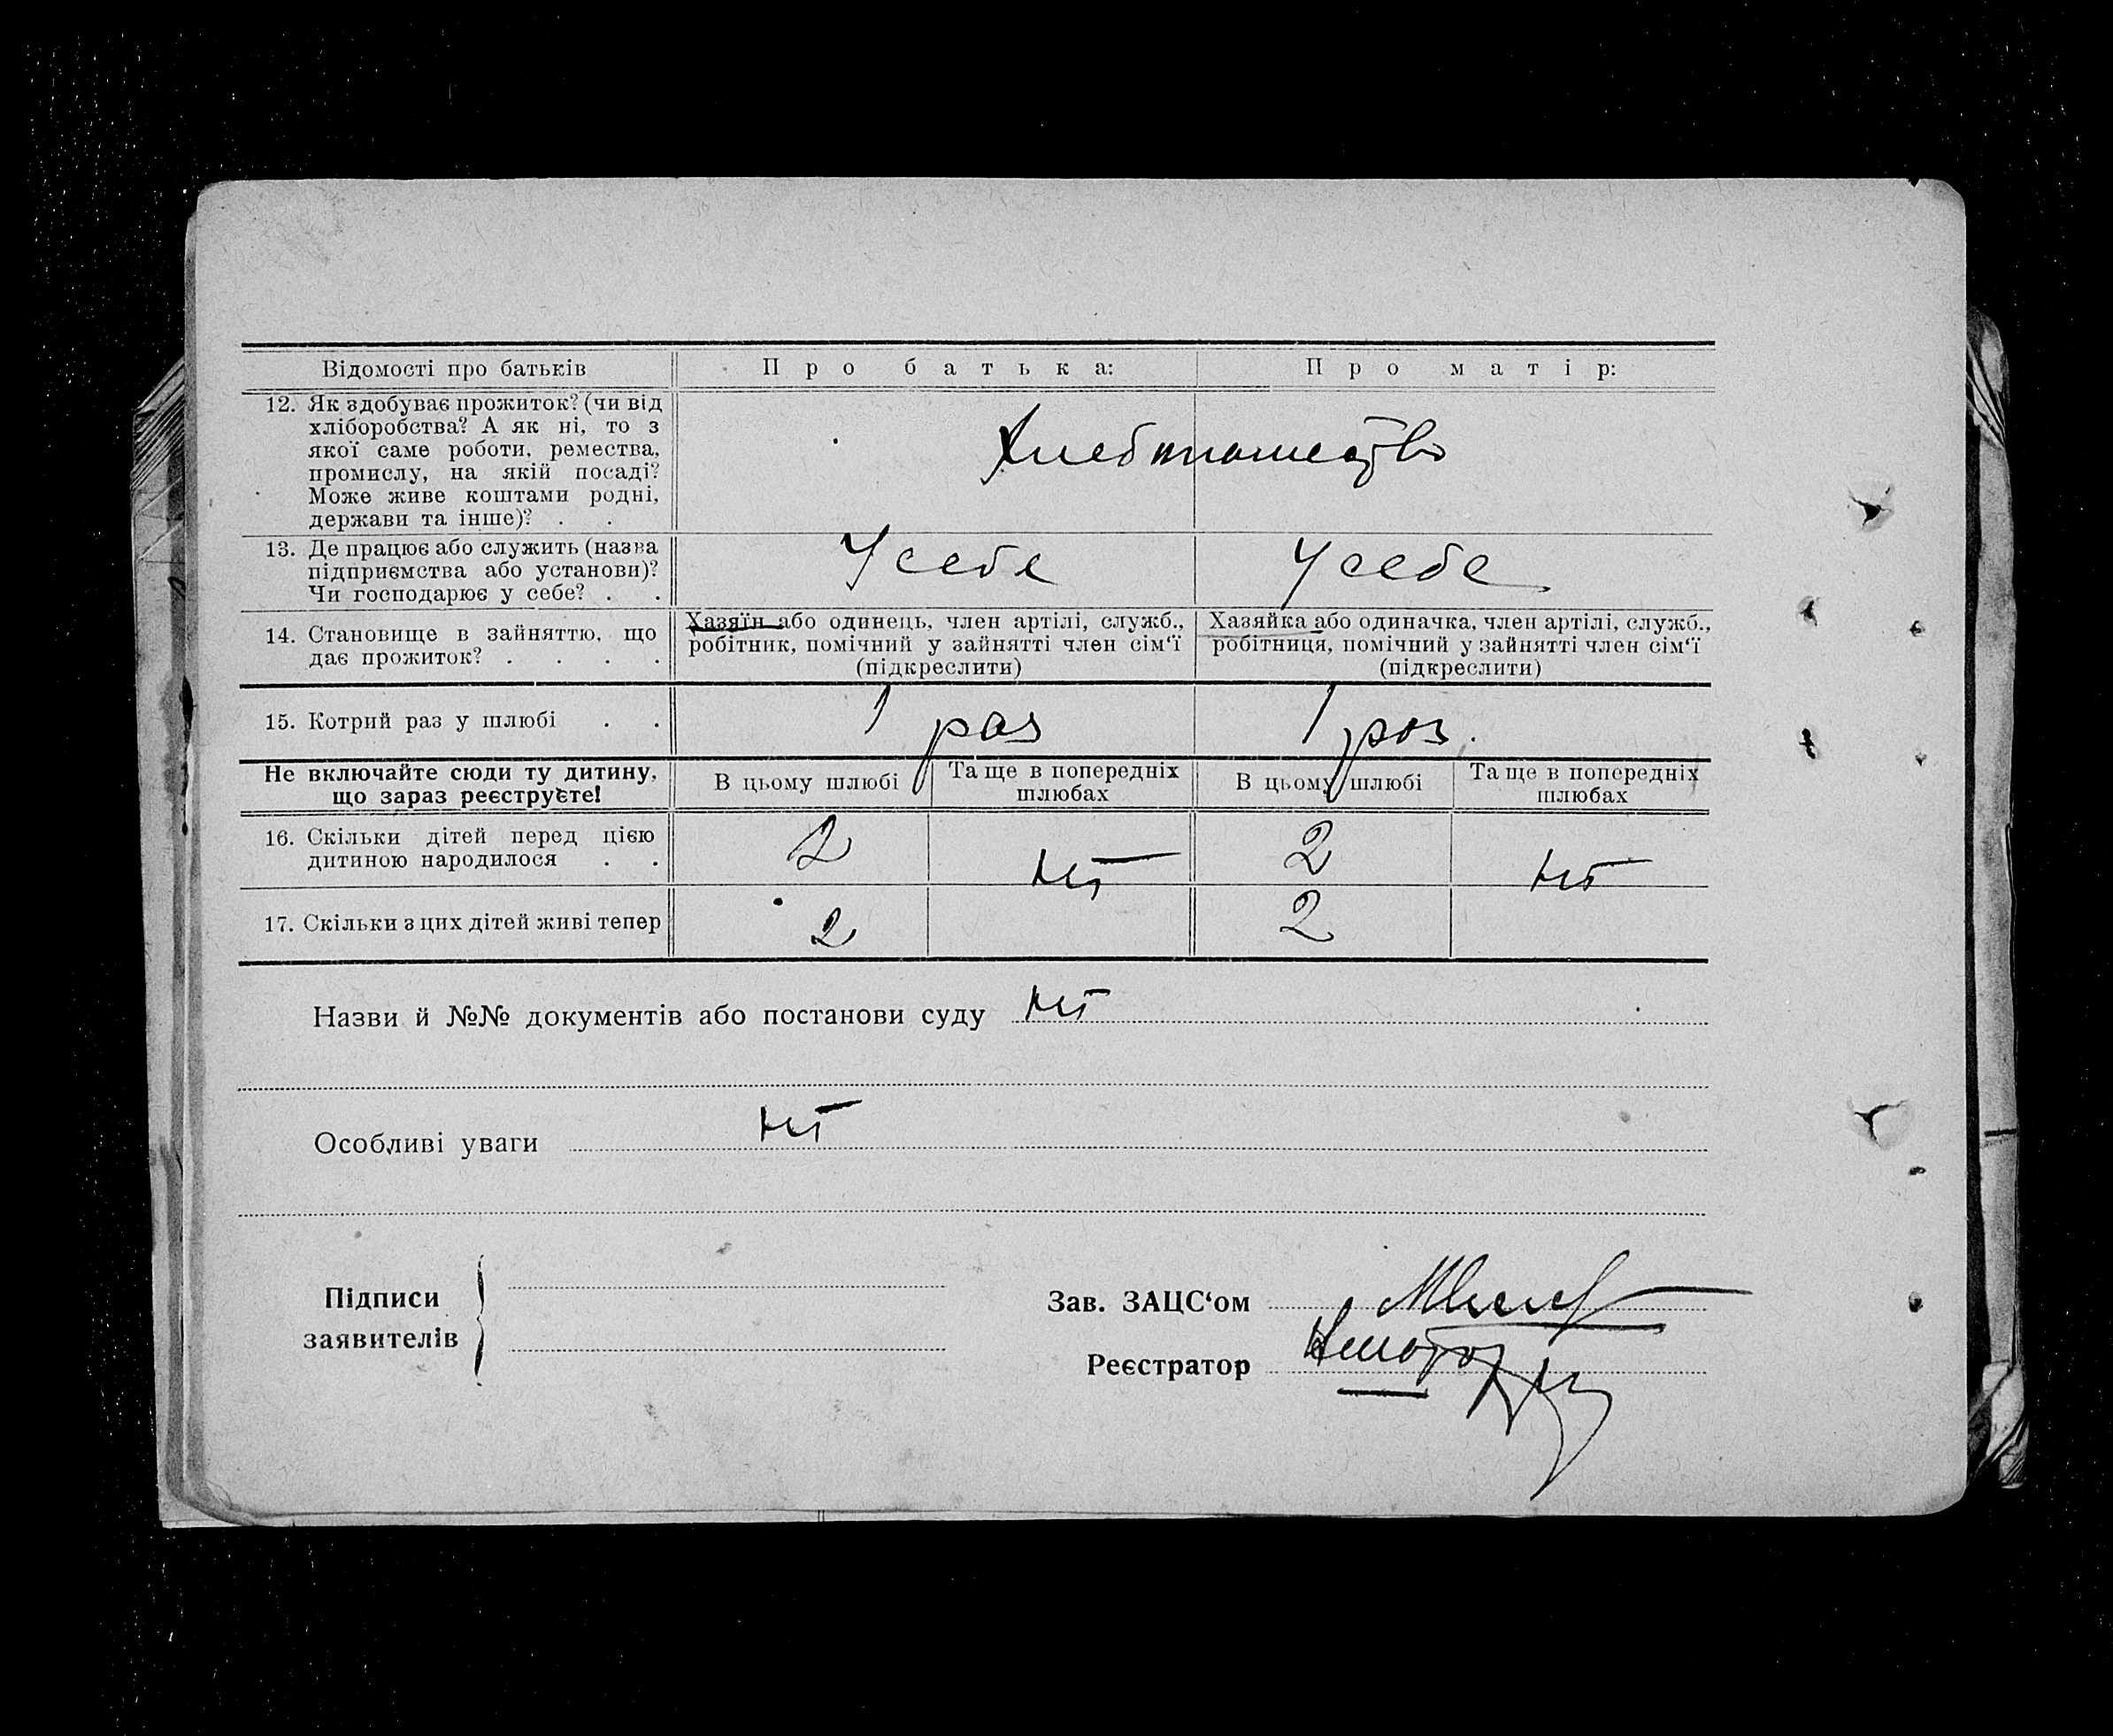 Відомості про батьків
П р о б а т ь к а:
П р о м а т і р:
12. Як здобуває прожиток? (чи від
хліборобства? А як ні, то з
якої саме роботи, ремества,
промислу, на якій посаді?
Може живе коштами родні,
держави та інше)? . .
13. Де працює або служить (назва
підприємства або установи)?
Чи господарює у себе? . .
У себе
У себе
14. Становище в зайняттю, що
дає прожиток? . . . .
Хазяїн або одинець, член артілі, служб.,
робітник, помічний у зайнятті член сім‘ї
(підкреслити)
Хазяйка або одиначка, член артілі, служб.,
робітниця, помічний у зайнятті член сім‘ї
(підкреслити)
15. Котрий раз у шлюбі . .
1 раз
1 раз.
Не включайте сюди ту дитину,
що зараз реєструєте!
В цьому шлюбі
Та ще в попередніх
шлюбах
В цьому шлюбі
Та ще в попередніх
шлюбах
16. Скільки дітей перед цією
дитиною народилося . .
2
2
17. Скільки з цих дітей живі тепер
2
2
Назви й №№ документів або постанови суду
Особливі уваги
Підписи
заявителів
Зав. ЗАЦС‘ом
Реєстратор